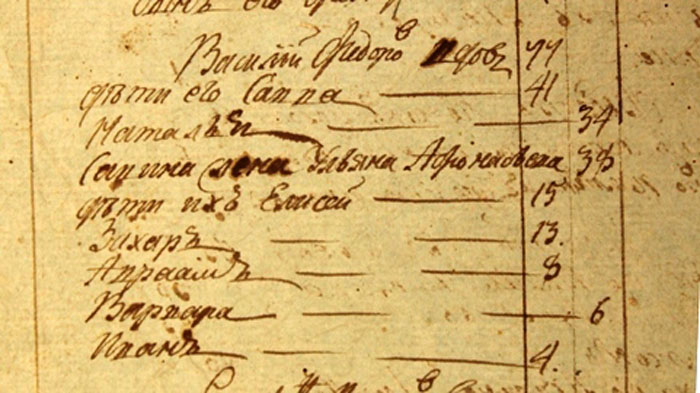 Василий Федоров вдов 77
дѣти его Савва 41
Наталья 34
Саввина жена Ульяна Афонасьева 38
дѣти ихъ Елисей 15
Захаръ 13.
Авраамъ 8
Варвара 6
Иванъ 4.